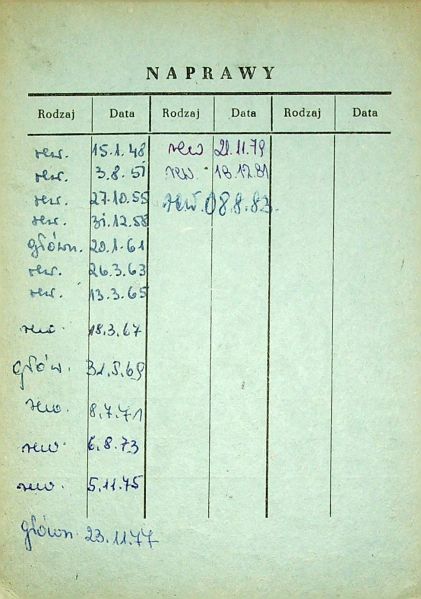 NAPRAWY
Rodzaj Data Rodzaj Data Rodzaj Data
rew. 15.1.48 rew 21.11.79
rew. 3.8.51 rew. 18.12.81
rew. 27.10.55 rew. 08.8.83.
rew. 31.12.58
główn. 20.1.61
rew. 26.3.63
rew. 13.3.65
rew. 18.3.67
głów. 31.5.69
rew. 8.7.71
rew. 6.8.73
rew. 5.11.75
główn. 23.11.77